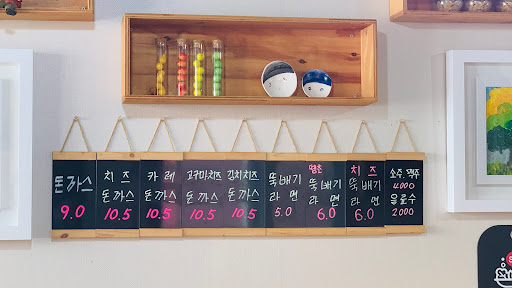 돈까스
9.0
치즈
돈까스
10.5
카레
돈까스
10.5
고구마치즈
돈까스
10.5
김치치즈
돈까스
10.5
뚝배기
라면
5.0
땡초
뚝배기
라면
6.0
치즈
뚝배기
라면
6.0
소주·맥주
4.000
음료수
2000